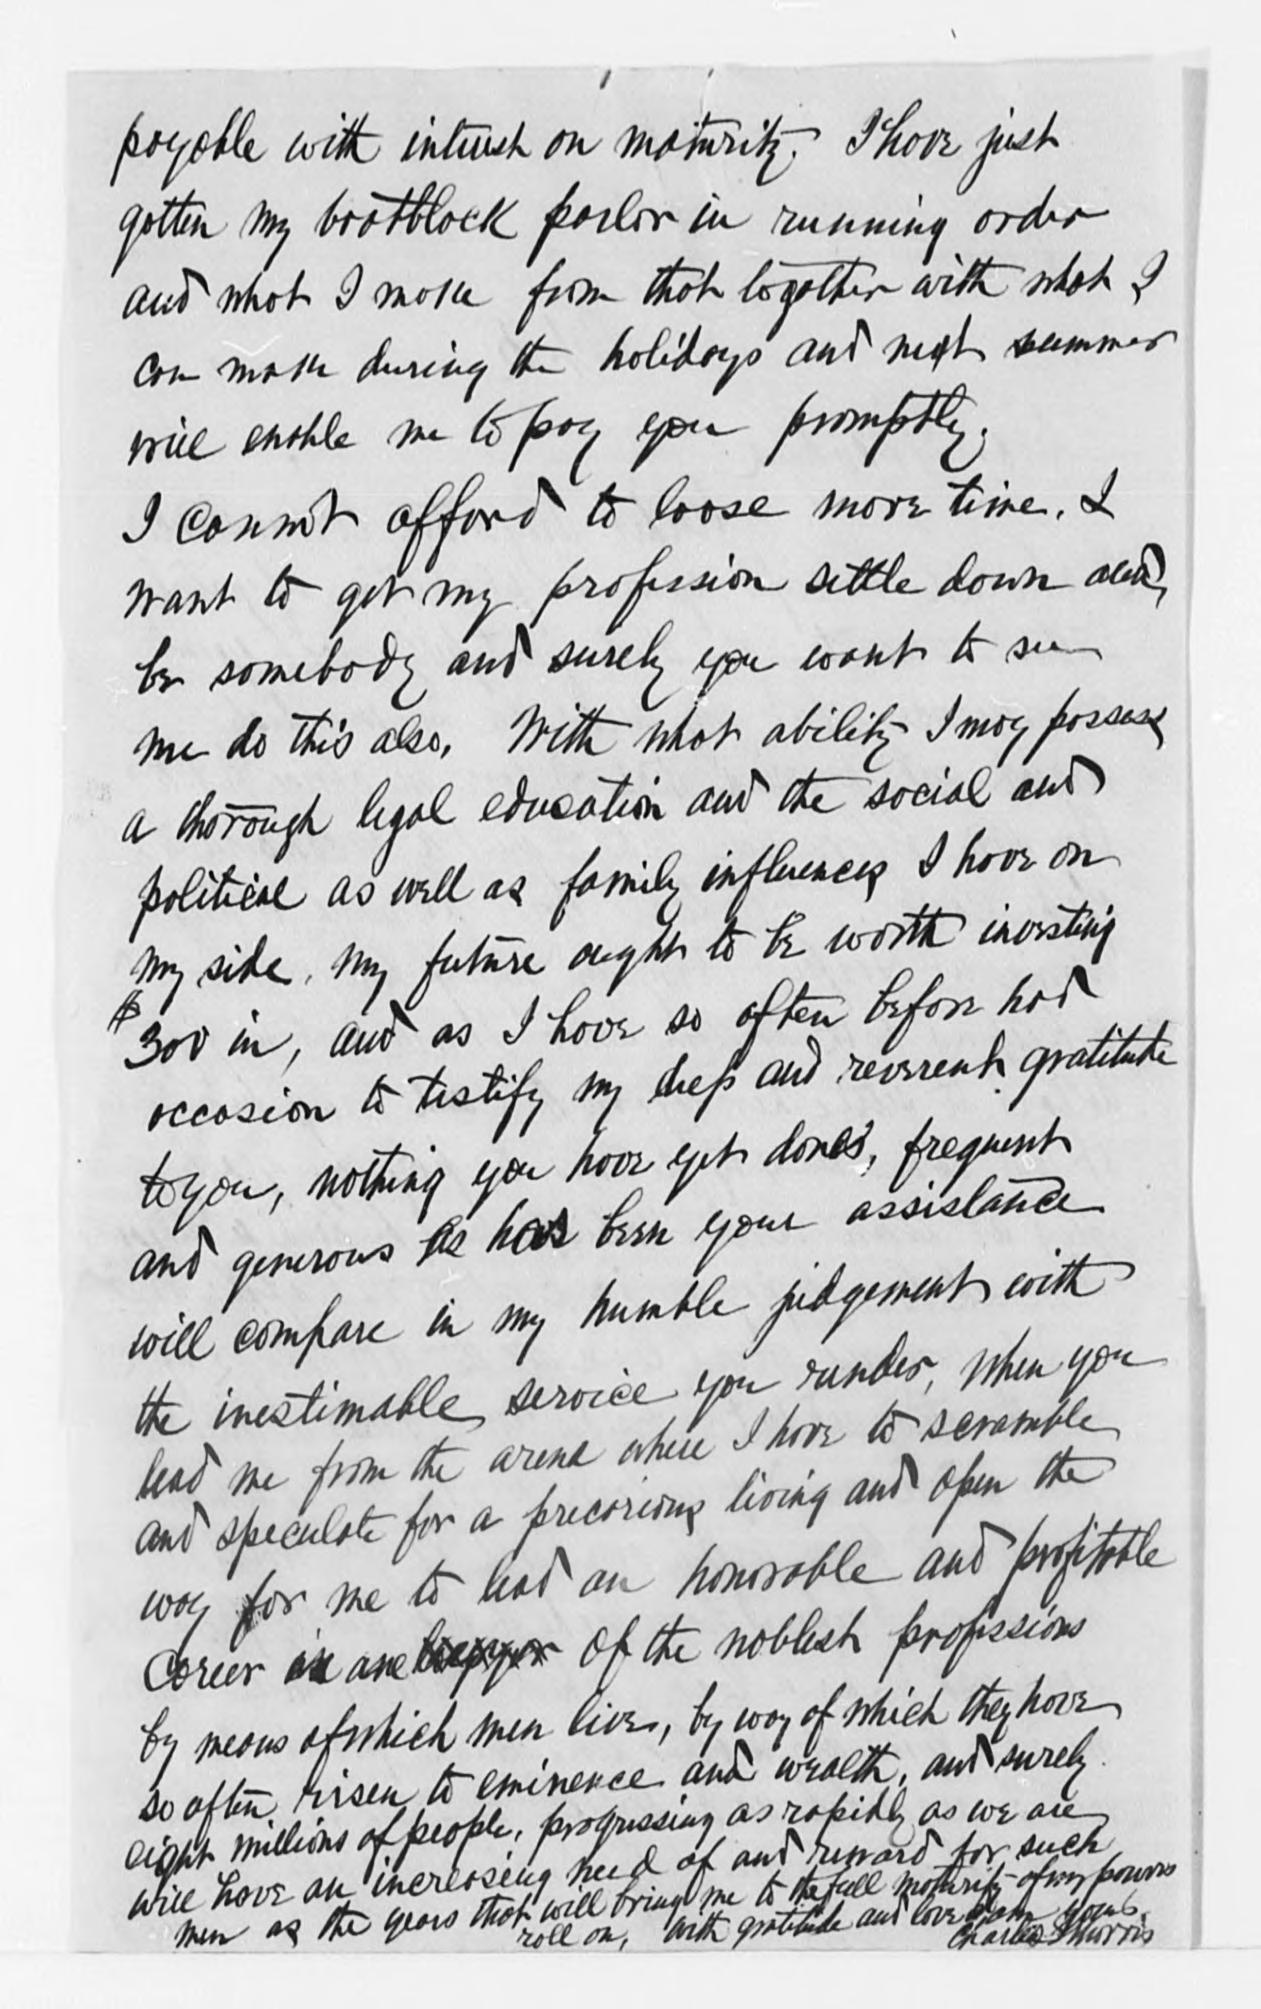 payable with interest on maturity. I have just
gotten my bootblack parlor in running order
and what I make from that together with what I
can make during the holidays and next summer
will enable me to pay you promptly.
I cannot afford to loose more time. I
want to get my profession settle down and
be somebody and surely you want to see
me do this also. With what ability I may possess
a thorough legal education and the social and
political as well as family influences I have on
my side, my future ought to be worth investing
$300 in, and as I have so often before had
occasion to testify my deep and reverent gratitude
to you, nothing you have yet done, frequent
and generous as has been your assistance
will compare in my humble judgement with
the inestimable service you render, when you
lead me from the arena where I have to scramble
and speculate for a precarious living and open the
way for me to lead an honorable and profitable
career in one of the noblest professions
by means of which men live, by way of which they have
so often risen to eminence and wealth, and surely
eight millions of people, progressing as rapidly as we are
will have an increasing need of and reward for such
men as the years that will bring me to the full maturity of my powers
roll on, with gratitude and love I am yours
Charles S Morris